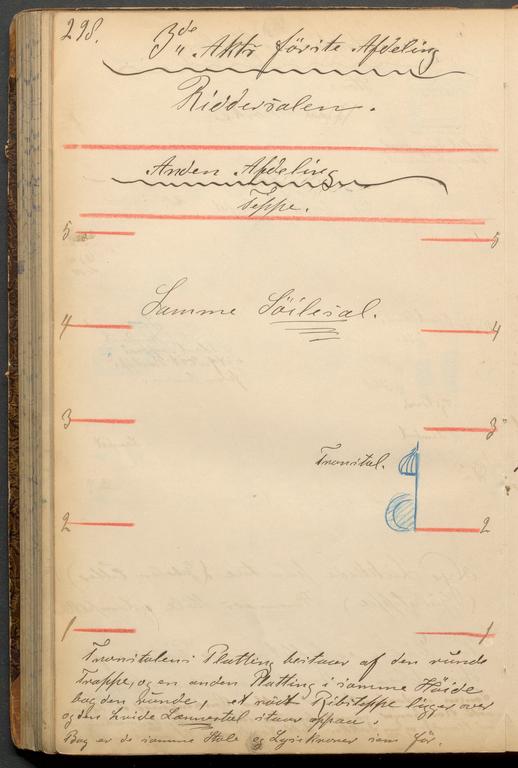 298.
3de Akts förste Afdeling
Riddersalen.
Anden Afdeling
Teppe.
5 5
Samme Söilesal.
4 4
3 3
Tronstol.
2 2
1 1
Tronstolens Platting bestaaer af den runde
Trappe, og en anden Platting i samme Höide
bag den runde, et rödt Ribsteppe ligger over
og den hvide Lænnestol staaer oppaa.
Bag er de samme Stole og Lysekroner som för.